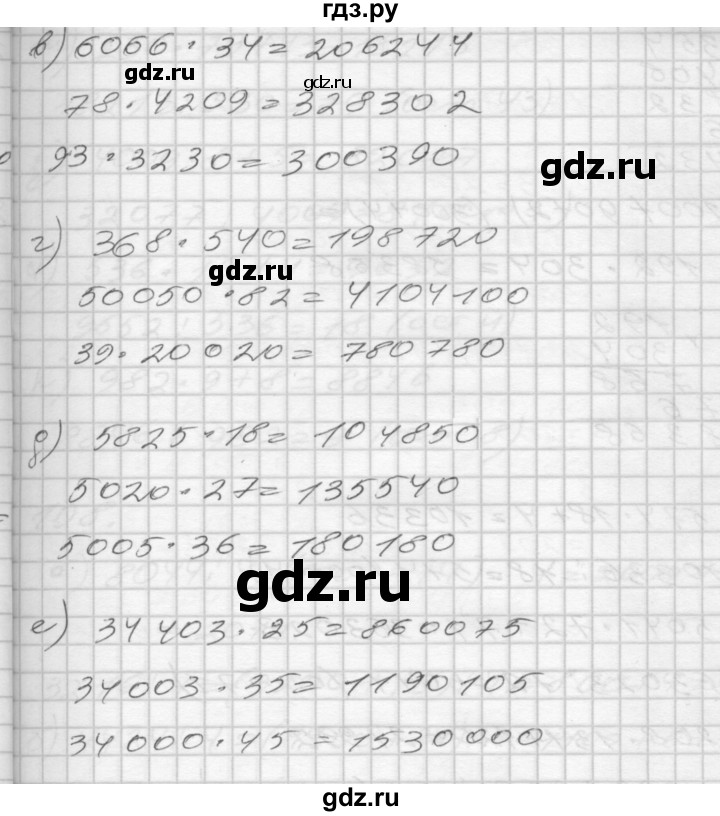 гдз.ру
в) 6066 · 34 = 206244
gdz.ru
gdz.ru
78 · 4209 = 328302
93 · 3230 = 300390
gdz.ru
г) 368 · 540 = 198720
gdz.ru
50050 · 82 = 4104100
39 · 20020 = 780780
д) 5825 · 18 = 104850
5020 · 27 = 135540
5005 · 36 = 180180
gdz.ru
е) 34403 · 25 = 860075
34003 · 35 = 1190105
34000 · 45 = 1530000
gdz.ru